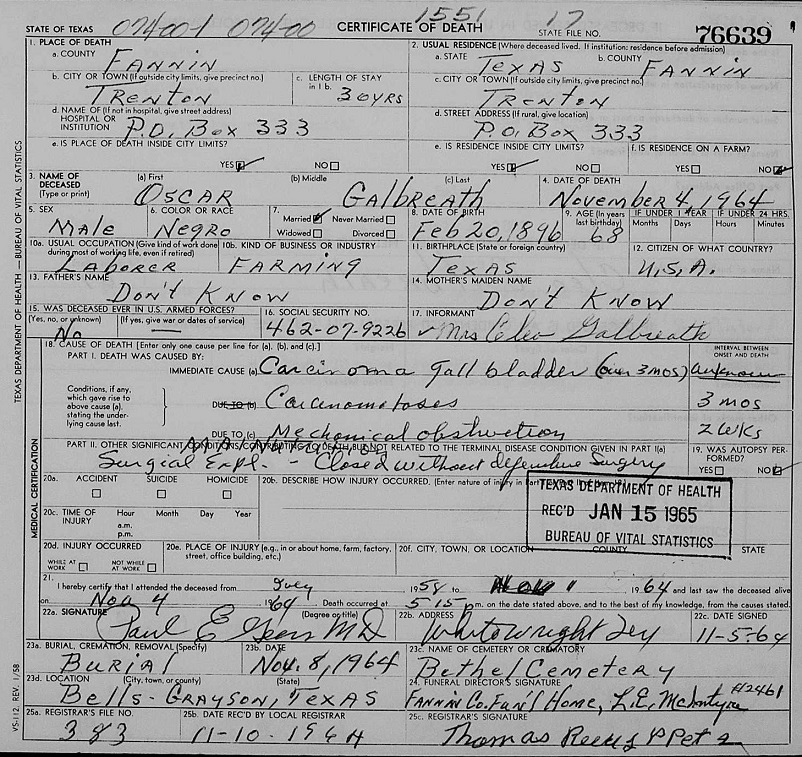 074-00-1 074-00 1551 17
STATE OF TEXAS CERTIFICATE OF DEATH STATE FILE NO. 76639
1. PLACE OF DEATH
a. COUNTY FANNIN
2. USUAL RESIDENCE (Where deceased lived. If institution: residence before admission)
a. STATE TEXAS b. COUNTY FANNIN
b. CITY OR TOWN (If outside city limits, give precinct no.) TRENTON
c. LENGTH OF STAY in 1 b. 30 YRS
c. CITY OR TOWN (If outside city limits, give precinct no.) TRENTON
d. NAME OF (If not in hospital, give street address) HOSPITAL OR INSTITUTION P.O. Box 333
d. STREET ADDRESS (If rural, give location) P.O. Box 333
e. IS PLACE OF DEATH INSIDE CITY LIMITS? YES NO
e. IS RESIDENCE INSIDE CITY LIMITS? YES NO
f. IS RESIDENCE ON A FARM? YES NO
3. NAME OF DECEASED (Type or print) (a) First OSCAR (b) Middle (c) Last Galbreath
4. DATE OF DEATH November 4, 1964
5. SEX Male
6. COLOR OR RACE Negro
7. Married Never Married Widowed Divorced
8. DATE OF BIRTH Feb 20, 1896
9. AGE (In years last birthday) 68
IF UNDER 1 YEAR Months Days
IF UNDER 24 HRS. Hours Minutes
10a. USUAL OCCUPATION (Give kind of work done during most of working life, even if retired) LABORER
10b. KIND OF BUSINESS OR INDUSTRY FARMING
11. BIRTHPLACE (State or foreign country) TEXAS
12. CITIZEN OF WHAT COUNTRY? U.S.A.
13. FATHER'S NAME Don't Know
14. MOTHER'S MAIDEN NAME Don't Know
15. WAS DECEASED EVER IN U.S. ARMED FORCES? (Yes, no, or unknown) No (If yes, give war or dates of service)
16. SOCIAL SECURITY NO. 462-07-9226
17. INFORMANT Mrs Cleo Galbreath
18. CAUSE OF DEATH [Enter only one cause per line for (a), (b), and (c).]
INTERVAL BETWEEN ONSET AND DEATH
PART I. DEATH WAS CAUSED BY:
IMMEDIATE CAUSE (a) Carcinoma Gall bladder (over 3 mos) unknown
Conditions, if any, which gave rise to above cause (a), stating the underlying cause last.
DUE TO (b) Carcinomatoses 3 mos
DUE TO (c) Mechanical obstruction 2 wks
PART II. OTHER SIGNIFICANT CONDITIONS CONTRIBUTING TO DEATH BUT NOT RELATED TO THE TERMINAL DISEASE CONDITION GIVEN IN PART I(a)
Surgical Expl. - Closed without definitive Surgery
19. WAS AUTOPSY PERFORMED? YES NO
MEDICAL CERTIFICATION
20a. ACCIDENT SUICIDE HOMICIDE
20b. DESCRIBE HOW INJURY OCCURRED. (Enter nature of injury in Part I or Part II of item 18.)
20c. TIME OF INJURY Hour Month Day Year a.m. p.m.
TEXAS DEPARTMENT OF HEALTH
REC'D JAN 15 1965
BUREAU OF VITAL STATISTICS
20d. INJURY OCCURRED WHILE AT WORK NOT WHILE AT WORK
20e. PLACE OF INJURY (e.g., in or about home, farm, factory, street, office building, etc.)
20f. CITY, TOWN, OR LOCATION COUNTY STATE
21. I hereby certify that I attended the deceased from July 1958 to Nov 1964 and last saw the deceased alive
on Nov 4 1964 Death occurred at 5:15 p.m. on the date stated above, and to the best of my knowledge, from the causes stated.
22a. SIGNATURE (Degree or title) Paul E M.D.
22b. ADDRESS Whitewright Tex
22c. DATE SIGNED 11-5-64
23a. BURIAL, CREMATION, REMOVAL (Specify) BURIAL
23b. DATE Nov. 8, 1964
23c. NAME OF CEMETERY OR CREMATORY Bethel Cemetery
23d. LOCATION (City, town, or county) (State) Bells - GRAYSON, TEXAS
24. FUNERAL DIRECTOR'S SIGNATURE FANNIN Co. Fun'l Home, L.E. McIntyre #2461
25a. REGISTRAR'S FILE NO. 383
25b. DATE REC'D BY LOCAL REGISTRAR 11-10-1964
25c. REGISTRAR'S SIGNATURE Thomas
TEXAS DEPARTMENT OF HEALTH — BUREAU OF VITAL STATISTICS
VS-112, REV. 1/58